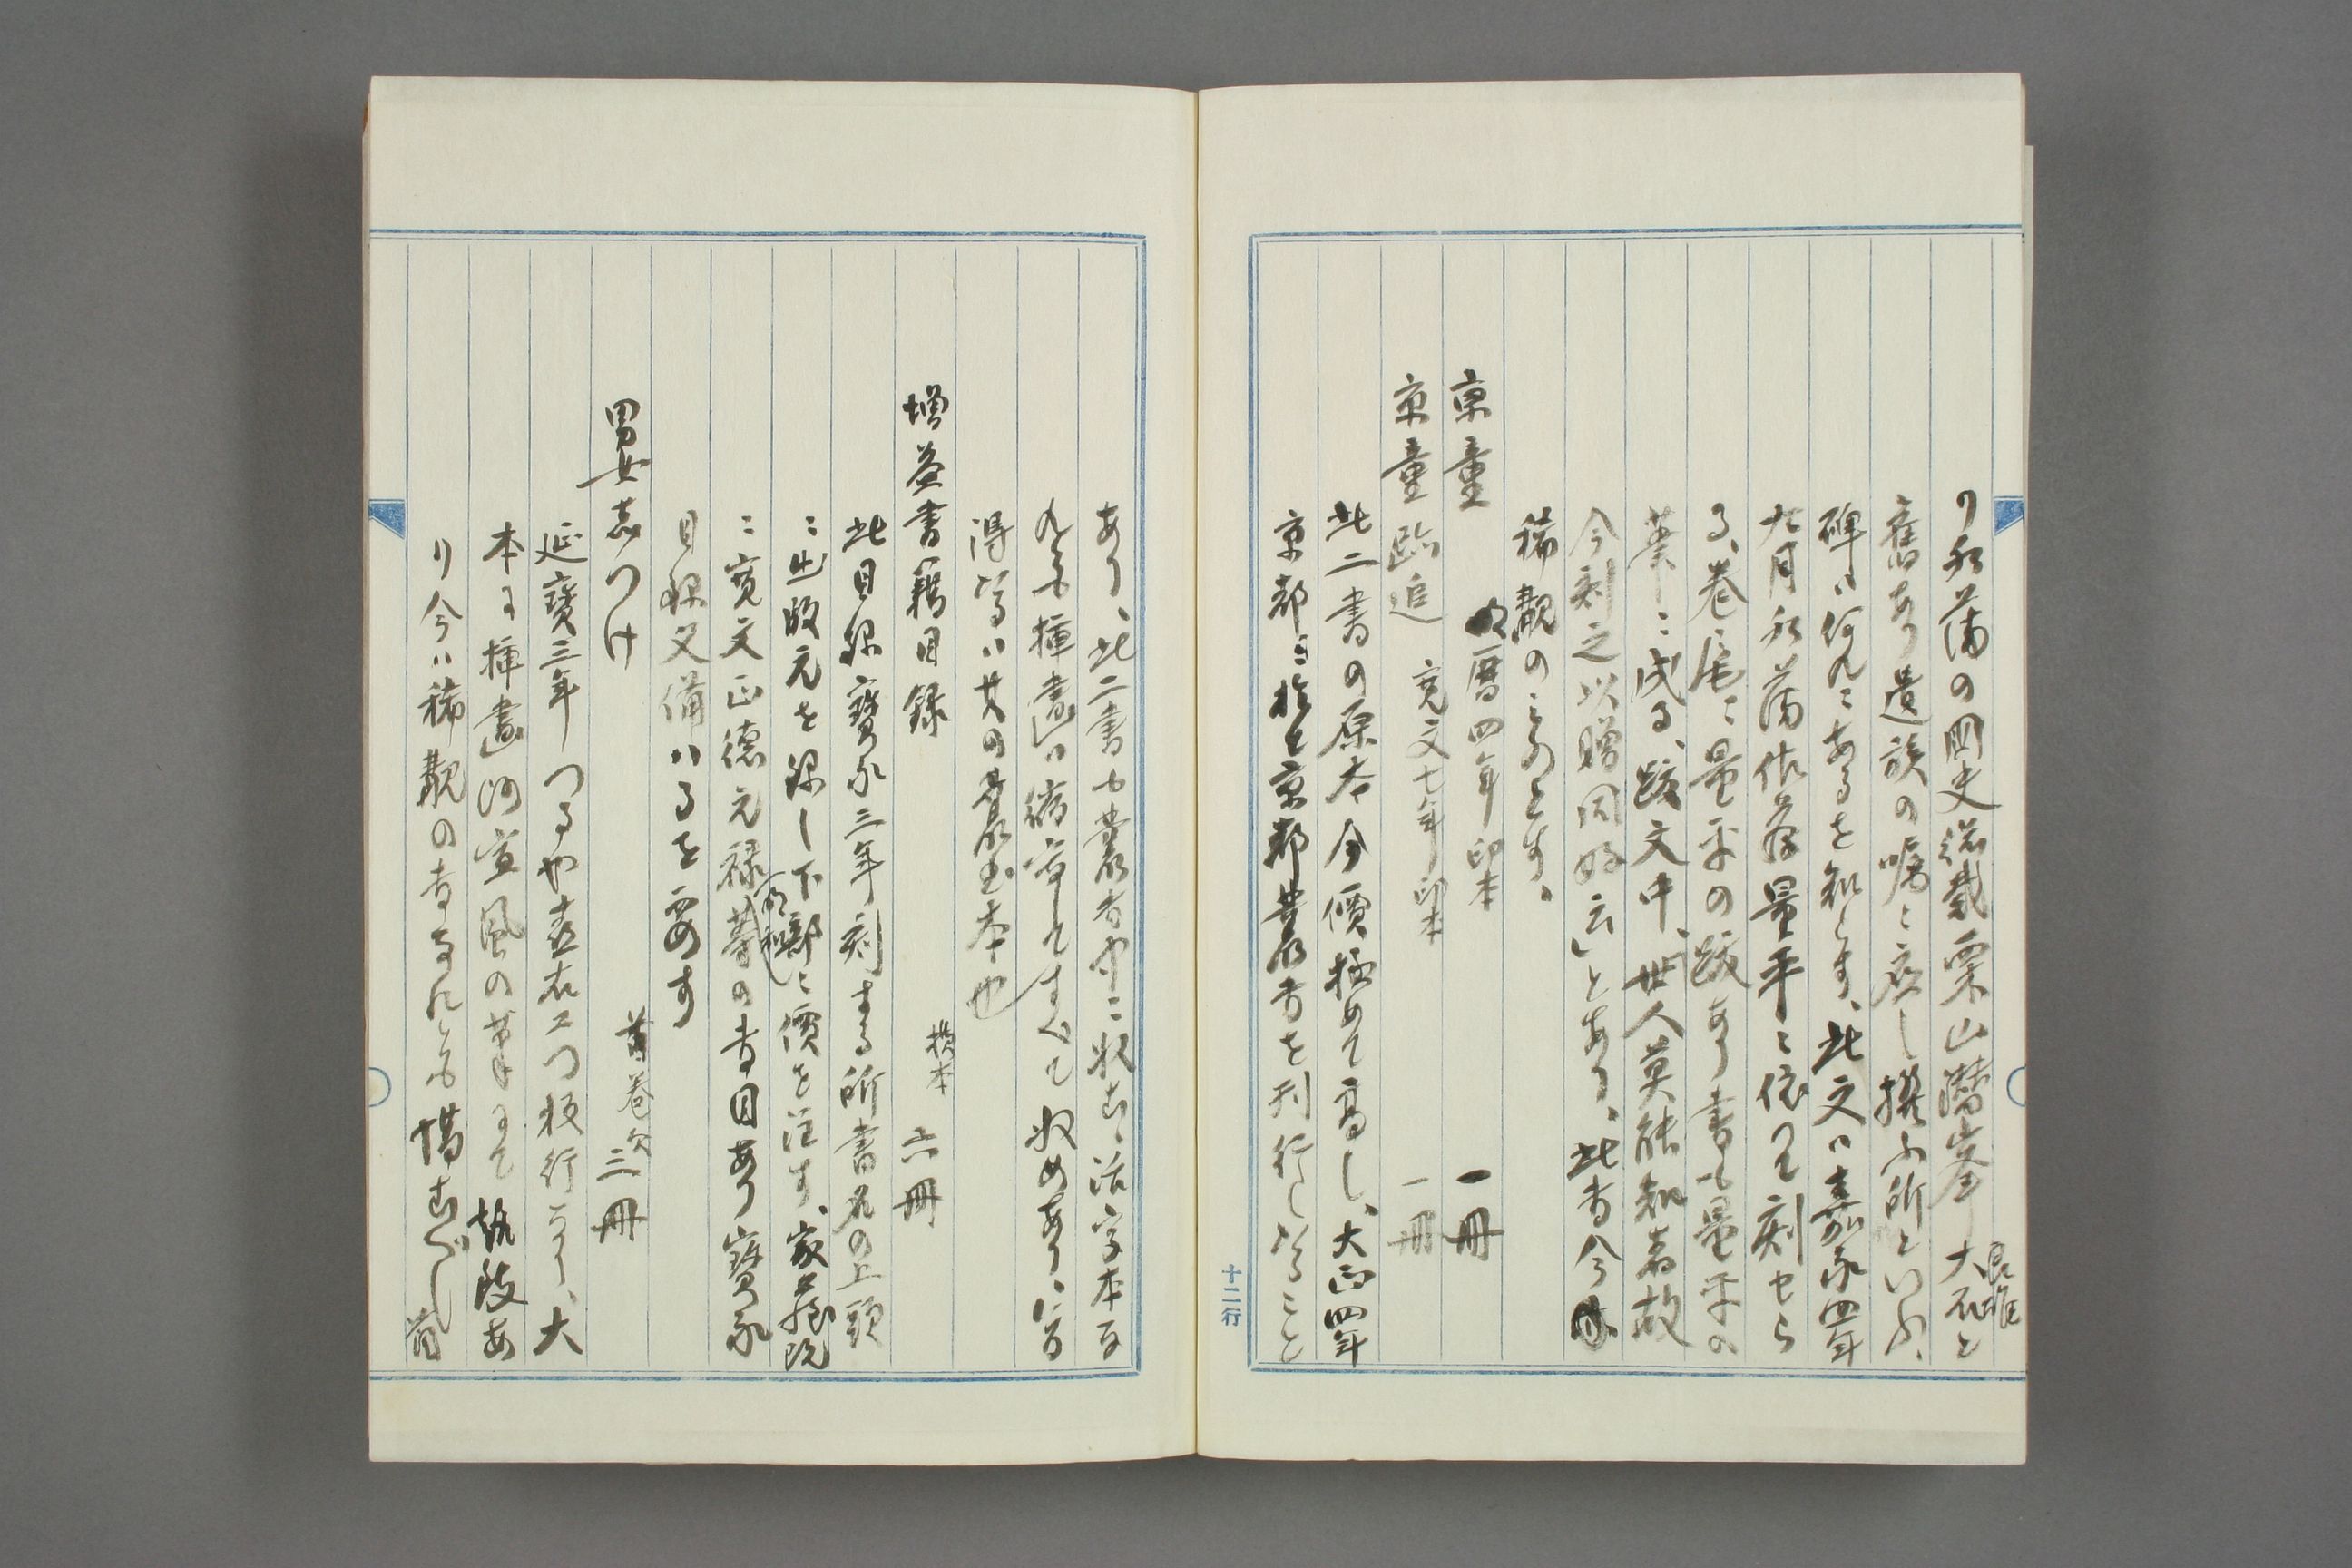 り和蒲の國史總裁栗山潜峯大石と
良雄
舊あり遺族の嘱に應し撰ふ所といふ、
碑は何れにあるを知らす、此文は嘉永四年
九月和蒲佐藤量平に依りて刻せら
る、巻尾に量平の跋あり書も量平の
筆に成る、跋文中、世人莫能知者故
今刻之以贈同好云」とあり、此書今
稀覯のものとす、
京童 明暦四年印本 一冊
京童跡追 寛文七年印本 一冊
此二書の原本今價極めて高し、大正四年
京都に於て京都叢書を刊行しさること
十二行
あり、此二書も叢書中に収む、活字本な
れとも挿畫は縮寫してすへて収めあり、
得さるは其の叢書本也
増益書籍目録 横本 六冊
此目録寶永三年刻する所書名の上頭
に出版元を録し下部に價を注す、家蔵既
に寛文正徳元禄等の書目あり寶永
明和
目録又備はるを要す
男女志つけ 首巻欠 三冊
延寶三年つるや喜右エ門板行なり、大
本に挿畫師宣風の筆にて数段あ
り今は稀覯の書なれとも惜むべし首